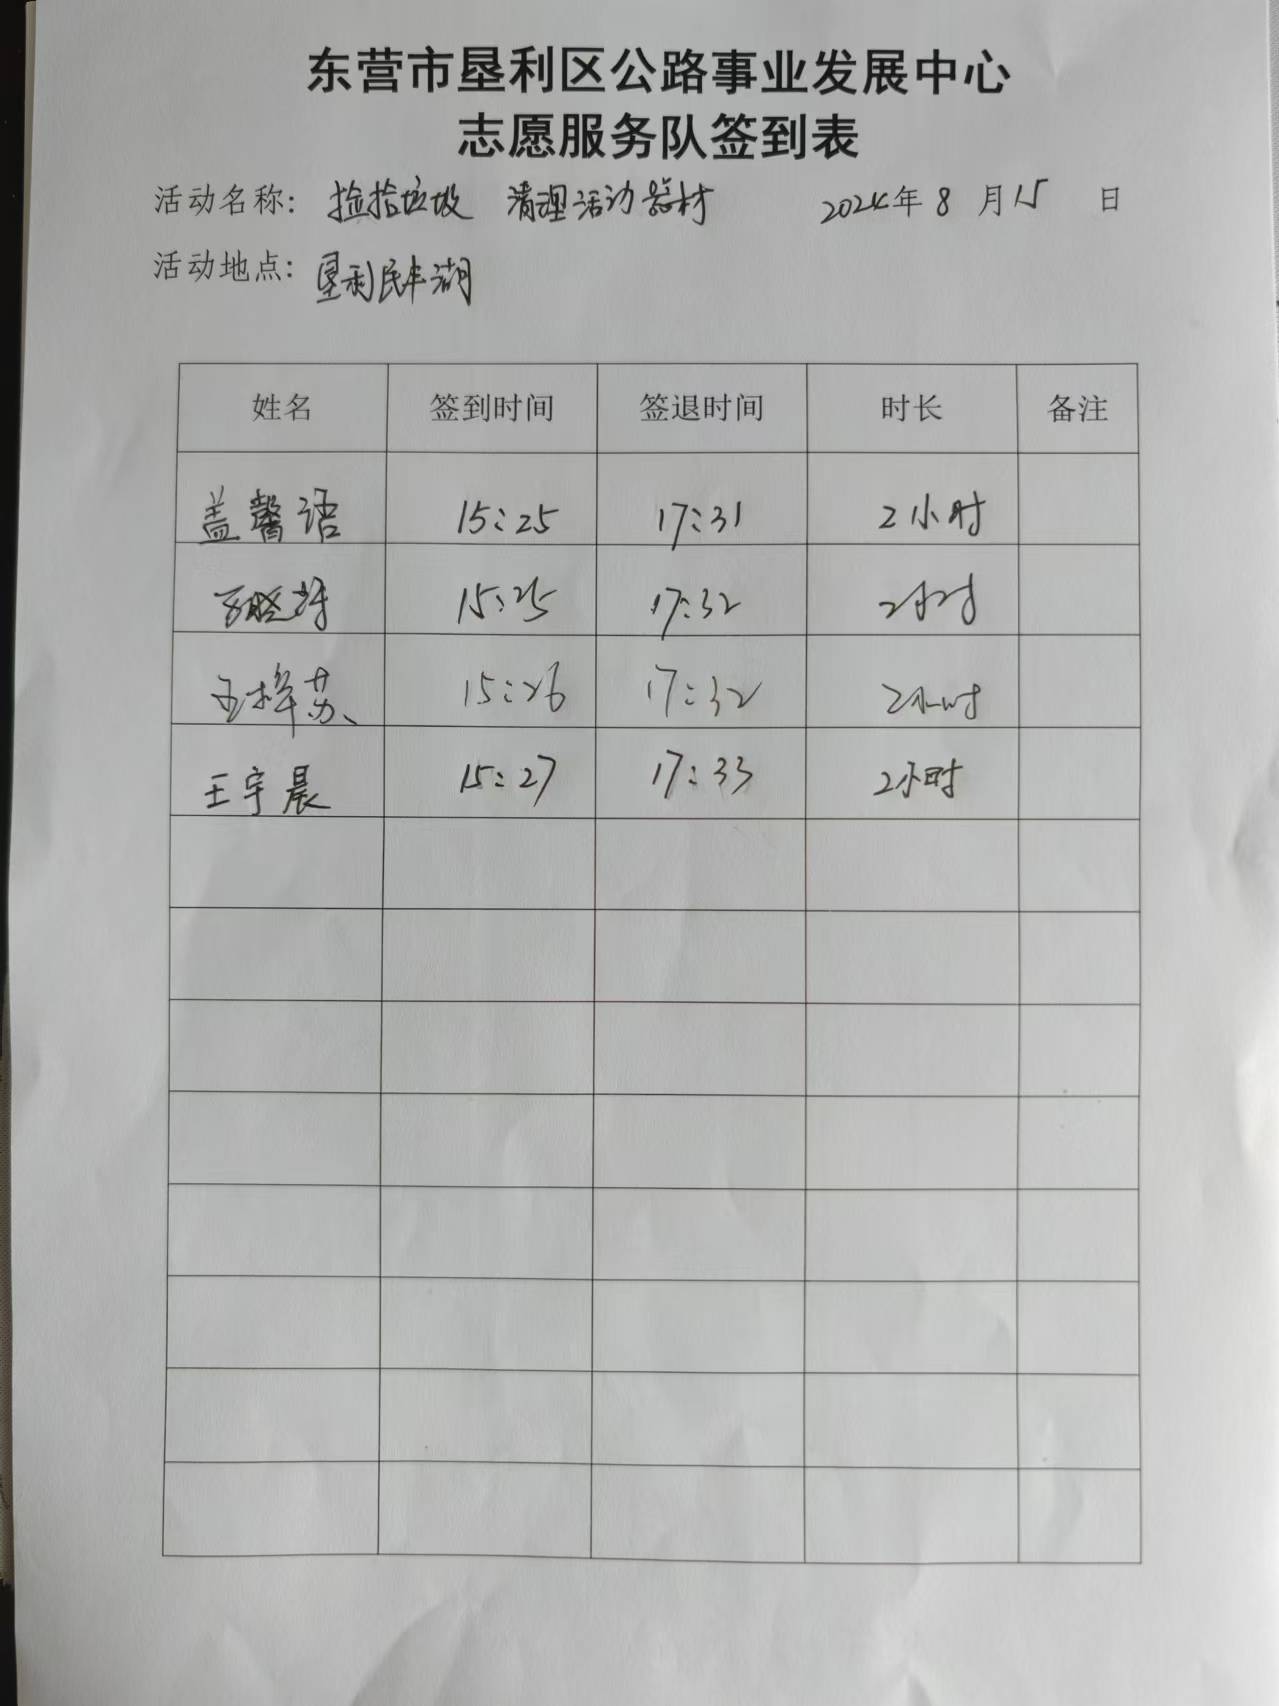 东营市垦利区公路事业发展中心
志愿服务队签到表
活动名称：捡拾垃圾 清理活动器材 2024年8月15日
活动地点：垦利民丰湖
姓名 签到时间 签退时间 时长 备注
盖馨语 15:25 17:31 2小时
15:25 17:32 2小时
王梓苏 15:26 17:32 2小时
王宇晨 15:27 17:33 2小时